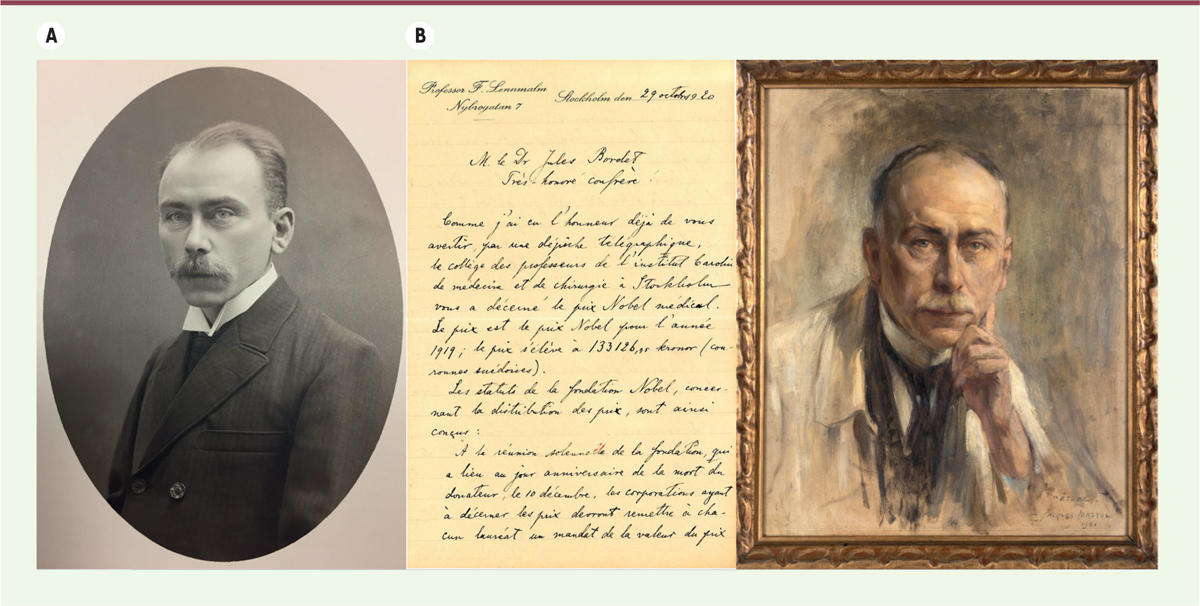 A
B
Professor F. Lennmalm
Nybrogatan 7
Stockholm den 29 octobre 1920
M. le Dr Jules Bordet
Très-honoré confrère!
Comme j'ai eu l'honneur déjà de vous
avertir, par une dépêche télégraphique,
le collège des professeurs de l'institut Carolin
de médecine et de chirurgie à Stockholm
vous a décerné le prix Nobel médical.
Le prix est le prix Nobel pour l'année
1919; le prix s'élève à 133126, kronor (cou-
ronnes suédoises).
Les statuts de la fondation Nobel, concer-
nant la distribution des prix, sont ainsi
conçus:
À la réunion solennelle de la fondation, qui
a lieu au jour anniversaire de la mort du
donateur, le 10 décembre, les corporations ayant
à décerner les prix devront remettre à cha-
cun lauréat un mandat de la valeur du prix
"ÉTUDE"
JACQUES MADYOL